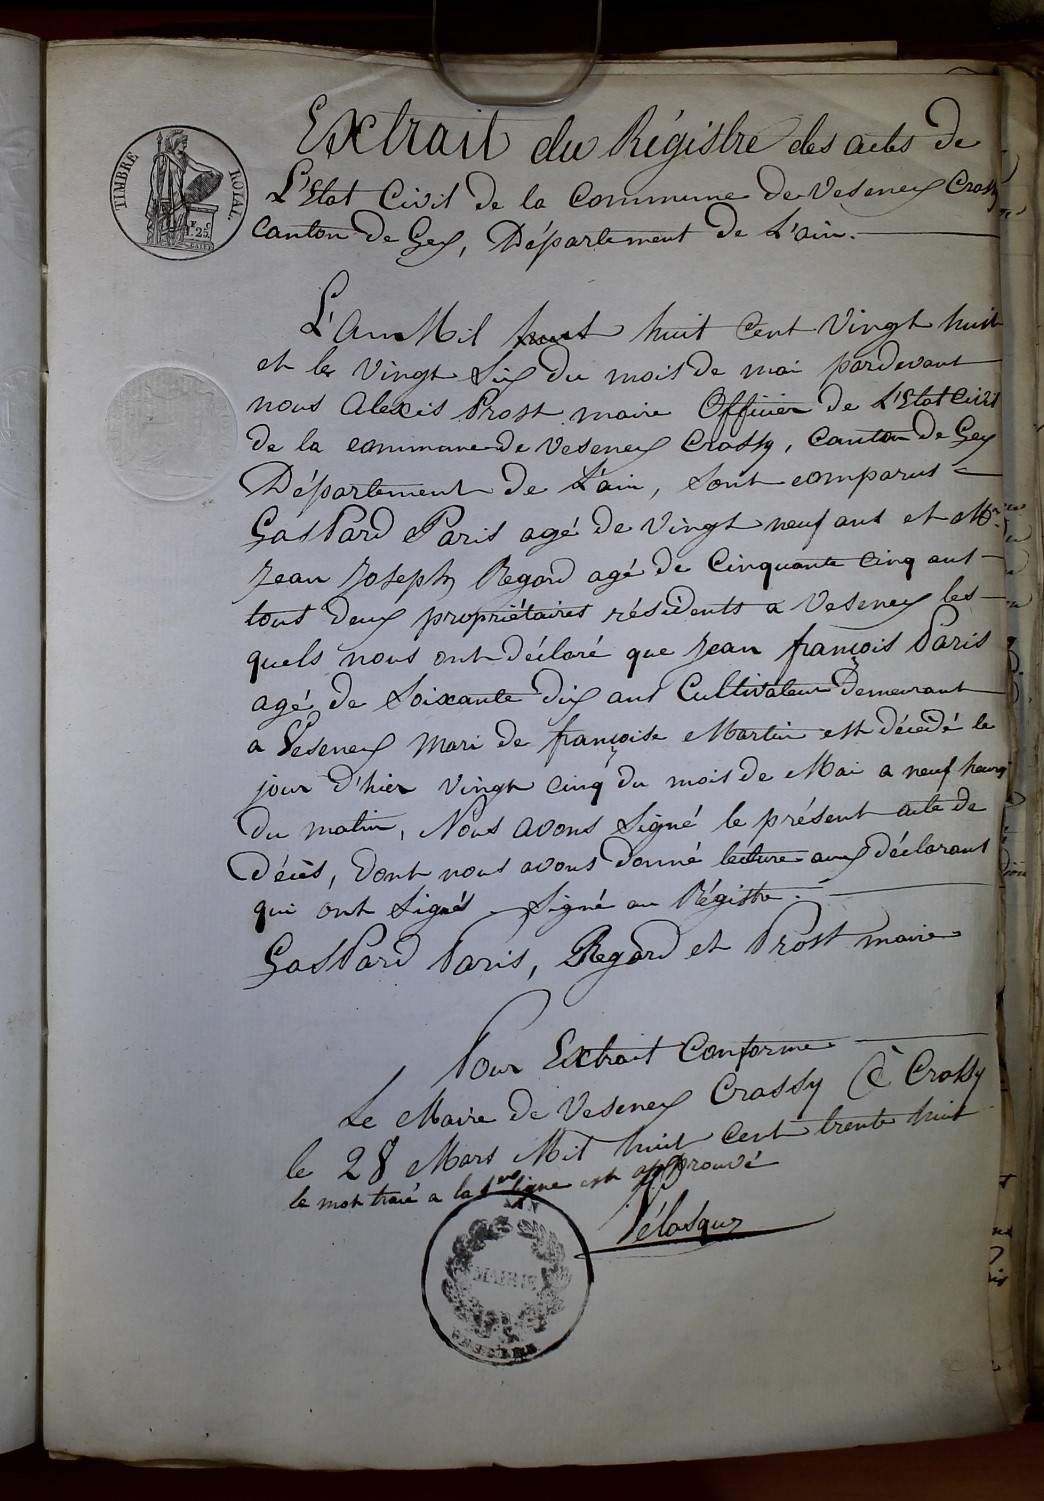 TIMBRE ROYAL.
1F. 25C.
Extrait du Régistre des actes de
L'Etat Civil de la Commune de Vesenex Crassy
Canton de Gex, Département de L'ain.
L'An Mil huit huit Cent Vingt huit
et le Vingt Six du mois de mai pardevant
nous Alexis Prost maire Officier de L'Etat Civil
de la commune de Vesenex Crassy, Canton de Gex
Département de L'ain, Sont comparus
Gaspard Paris agé de Vingt neuf ans et Mr
Jean Joseph Regard agé de Cinquante Cinq ans
tous deux propriétaires résidents a Vesenex les
quels nous ont déclaré que Jean françois Paris
agé de Soixante Dix ans Cultivateur Demeurant
a Vesenex Mari de françoise Martin est décédé le
jour d'hier Vingt cinq du mois de Mai a neuf heures
Du matin, Nous avons Signé le présent acte de
Décès, Dont nous avons Donné lecture aux déclarant
qui ont Signés. Signé au Régistre.
Gaspard Paris, Regard et Prost maire
Pour Extrait Conforme
Le Maire de Vesenex Crassy à Crassy
le 28 Mars Mil huit Cent trente huit
le mot tracé a la 1ere ligne est approuvé
Pélasquz
AIN
MAIRIE